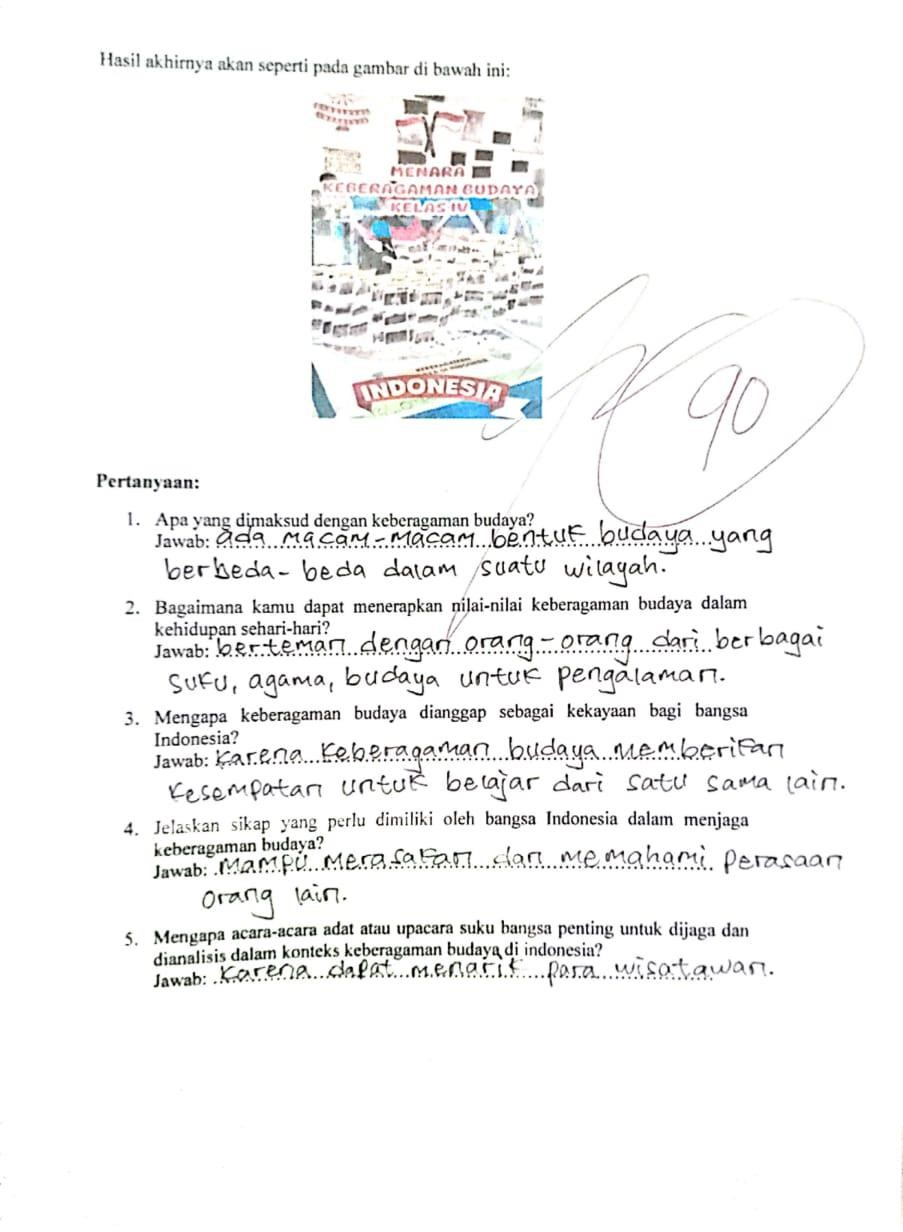 Hasil akhirnya akan seperti pada gambar di bawah ini:
MENARA
KEBERAGAMAN BUDAYA
KELAS IV
INDONESIA
90
Pertanyaan:
1. Apa yang dimaksud dengan keberagaman budaya?
Jawab: ada macam-macam bentuk budaya yang
berbeda-beda dalam suatu wilayah.
2. Bagaimana kamu dapat menerapkan nilai-nilai keberagaman budaya dalam
kehidupan sehari-hari?
Jawab: berteman dengan orang-orang dari berbagai
suku, agama, budaya untuk pengalaman.
3. Mengapa keberagaman budaya dianggap sebagai kekayaan bagi bangsa
Indonesia?
Jawab: karena keberagaman budaya memberikan
kesempatan untuk belajar dari satu sama lain.
4. Jelaskan sikap yang perlu dimiliki oleh bangsa Indonesia dalam menjaga
keberagaman budaya?
Jawab: Mampu merasakan dan memahami perasaan
orang lain.
5. Mengapa acara-acara adat atau upacara suku bangsa penting untuk dijaga dan
dianalisis dalam konteks keberagaman budaya di indonesia?
Jawab: karena dapat menarik para wisatawan.